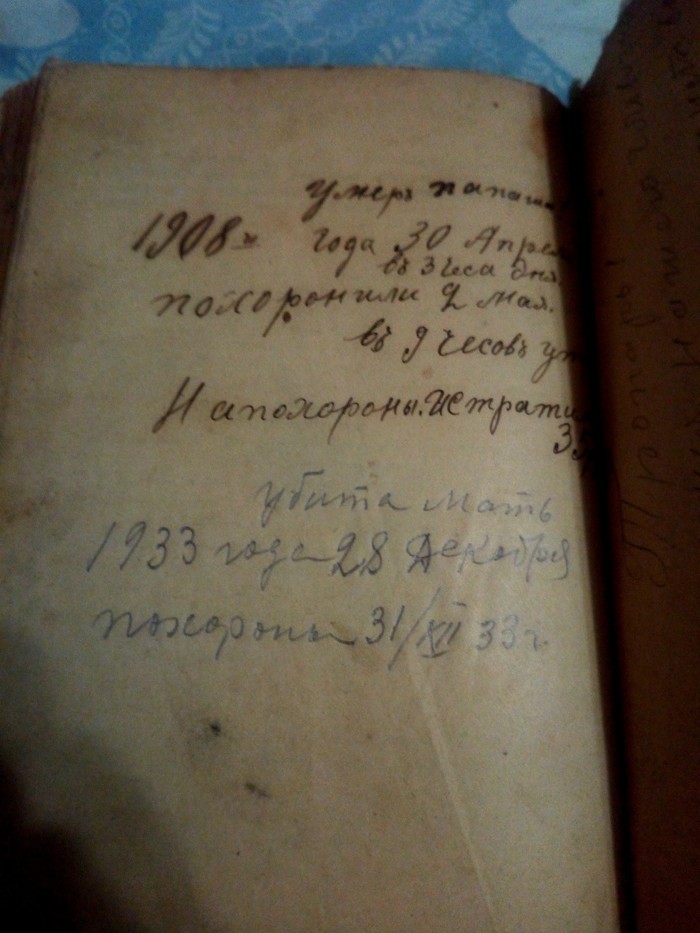 Умеръ папаша
1908 го года 30 Апреля
въ 3 чеса дня.
похоронили 2 мая.
въ 9 чесовъ ут
На похороны. Истратил
35
убита мать
1933 года 28 декабря
похорона 31/XII 33 г.